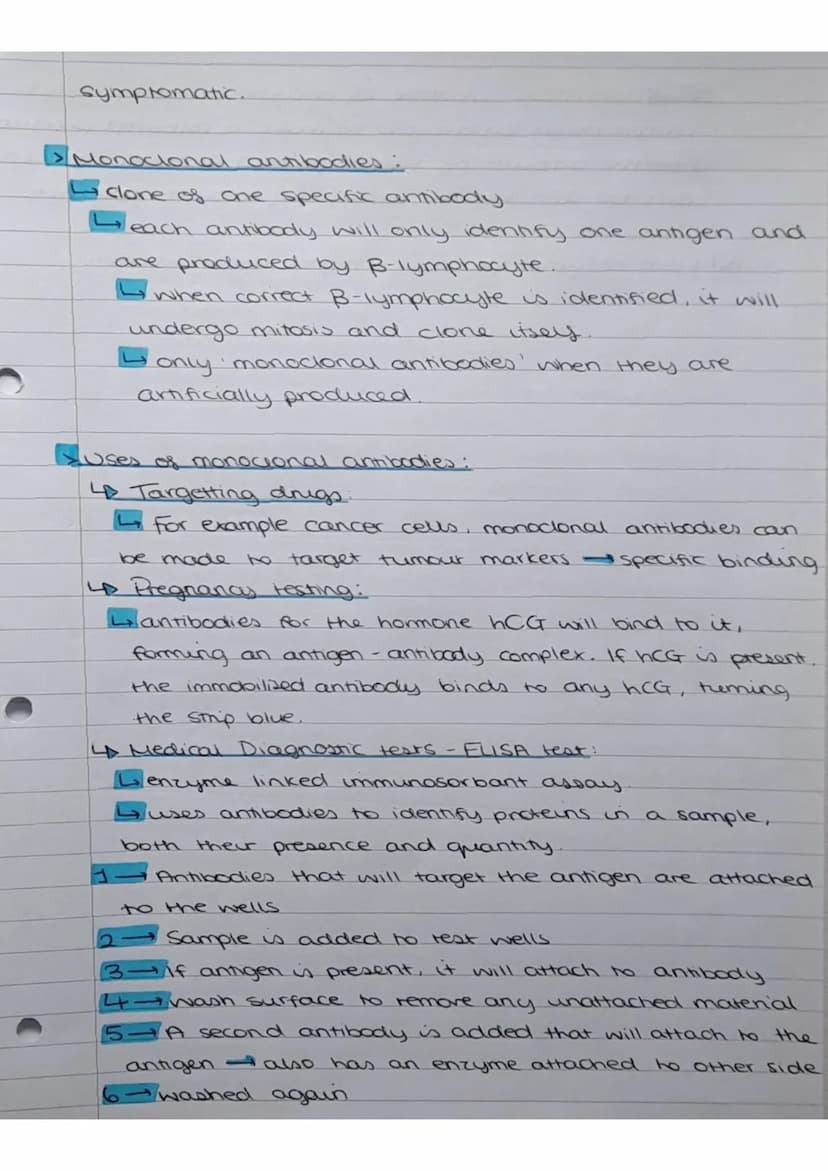 symptomatic.
> Monoclonal antibodies:
↳ clone of one specific antibody
↳ each antibody will only identify one antigen and
are produced by β-lymphocyte.
↳ when correct β-lymphocyte is identified, it will
undergo mitosis and clone itself.
↳ only 'monoclonal antibodies' when they are
artificially produced.
> Uses of monoclonal antibodies:
↳ Targetting drugs:
↳ For example cancer cells, monoclonal antibodies can
be made to target tumour markers → specific binding
↳ Pregnancy testing:
↳ antibodies for the hormone hCG will bind to it,
forming an antigen-antibody complex. If hCG is present,
the immobilised antibody binds to any hCG, turning
the strip blue.
↳ Medical Diagnostic tests - ELISA test:
↳ enzyme linked immunosorbant assay.
↳ uses antibodies to identify proteins in a sample,
both their presence and quantity.
1 → Antibodies that will target the antigen are attached
to the wells
2 → Sample is added to test wells
3 → If antigen is present, it will attach to antibody
4 → Wash surface to remove any unattached material
5 → A second antibody is added that will attach to the
antigen → also has an enzyme attached to other side
6 → washed again